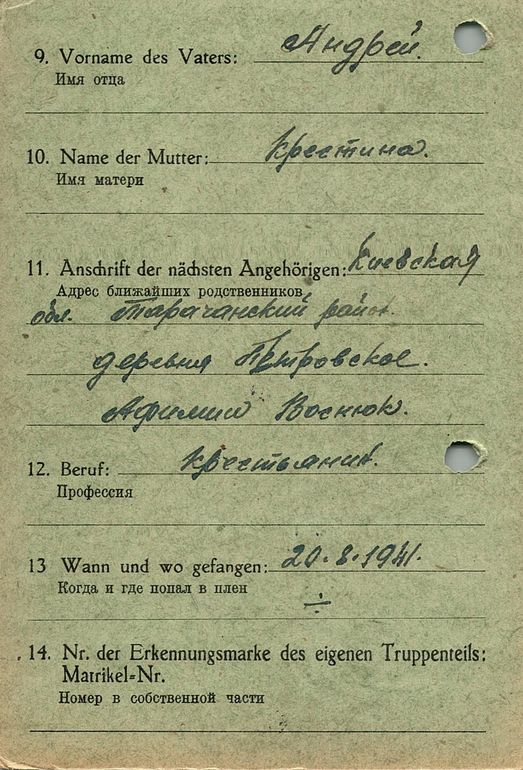 9. Vorname des Vaters: Андрей.
Имя отца
10. Name der Mutter: Крестина.
Имя матери
11. Anschrift der nächsten Angehörigen: Киевская
Адрес ближайших родственников
обл. Тарачанский район.
деревня Петровское.
Афимии Воснюк.
12. Beruf: Крестьянин.
Профессия
13 Wann und wo gefangen: 20.8.1941.
Когда и где попал в плен
÷
14. Nr. der Erkennungsmarke des eigenen Truppenteils:
Matrikel=Nr.
Номер в собственной части